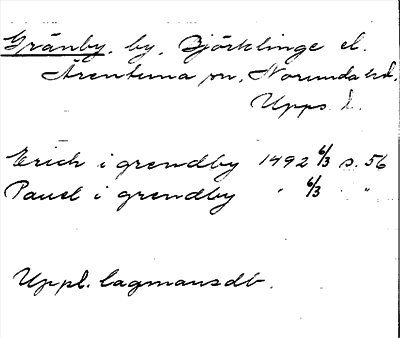 Gränby. by. Björklinge el.
Ärentuna sn, Norunda hd.
Upps. l.
Erich i grendby 1492 6/3 s. 56
Pauel i grendby " 6/3 " "
Uppl. lagmansdb.